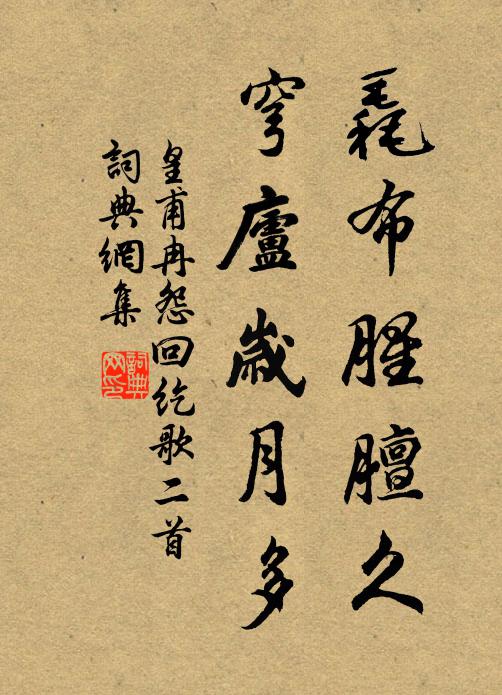 毳布腥膻久
穹廬歲月多
皇甫冉怨回紇歌二首
詞典網集
詞典
网印